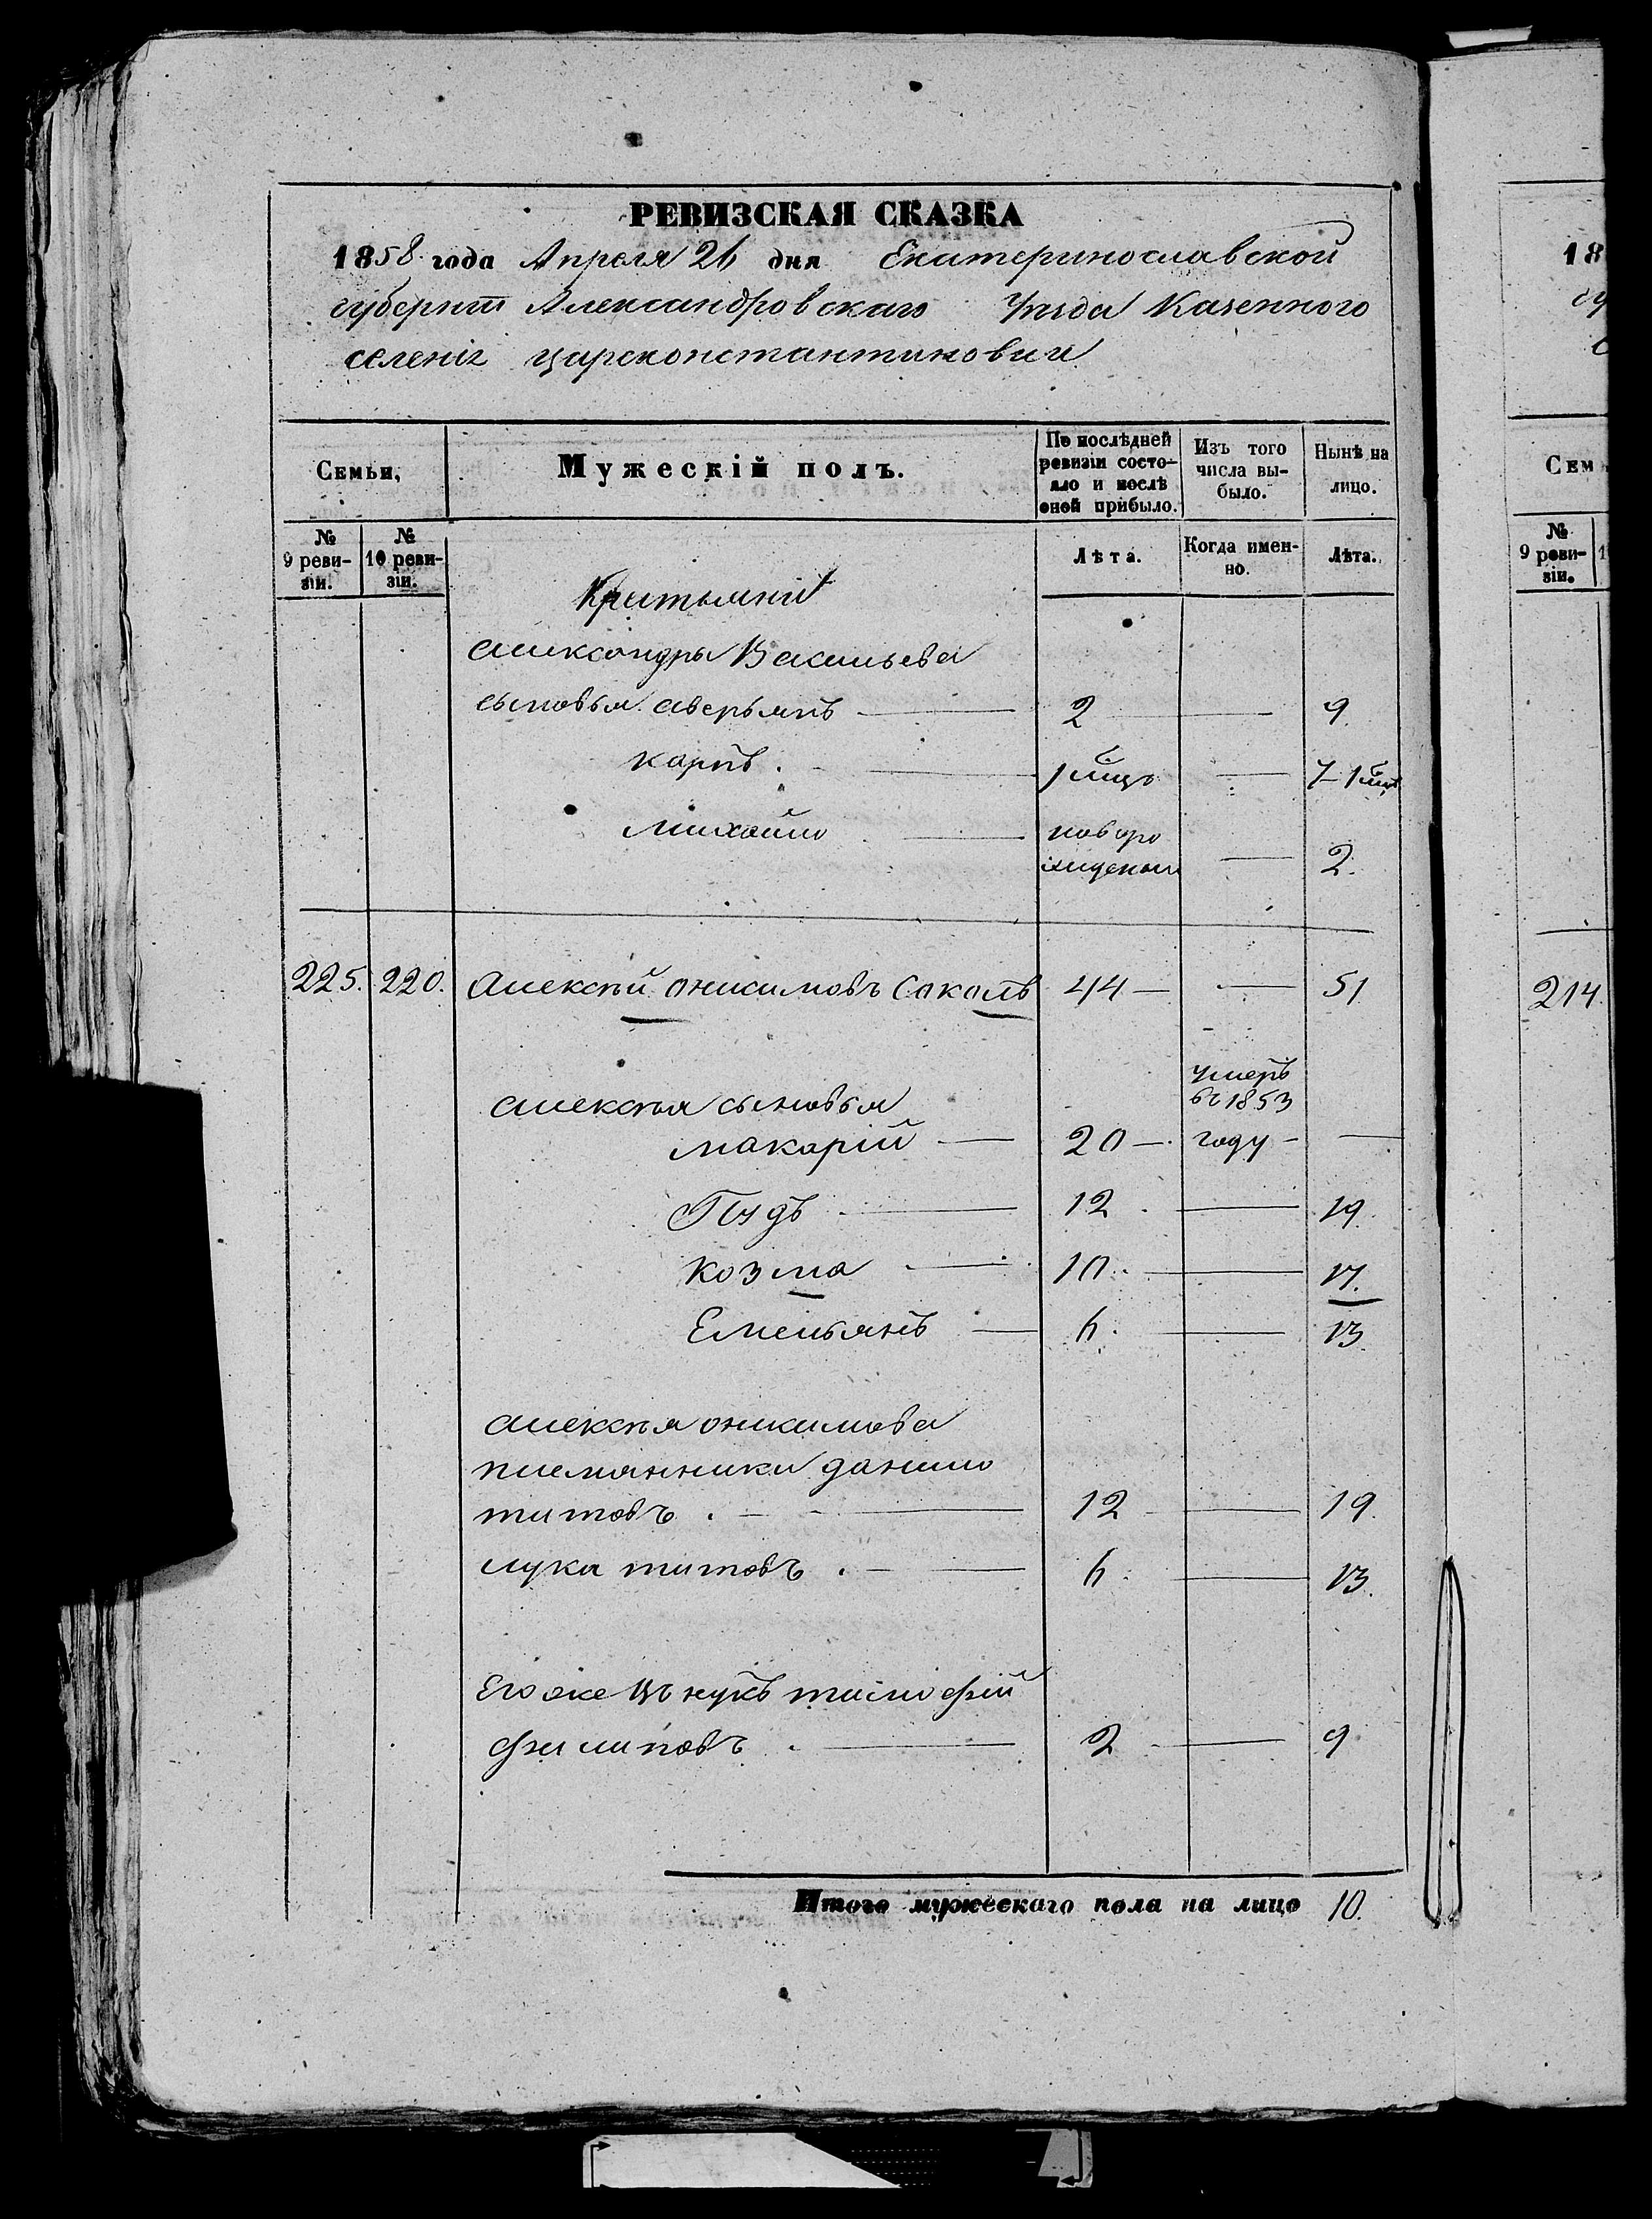 РЕВИЗСКАЯ СКАЗКА
1858 года Апреля 26 дня Екатеринославской
губерніи Александровскаго Уѣзда Казенного
селенія Царсконстантиновки
Семьи, Мужескій полъ. По послѣдней ревизіи состояло и послѣ оной прибыло. Изъ того числа выбыло. Нынѣ на лицо.
№ 9 ревизіи. № 10 ревизіи. Лѣта. Когда именно. Лѣта.
александра Васильева
сыновья аверьянъ 2 9.
карпъ. 1 мцъ 7-1 мц
михайло новоро
жденый 2.
225. 220. алексѣй онисимовъ Соколъ 44 51
умеръ
въ 1853
алексѣя сыновья
макарій 20 году
Гіудъ 12 19.
козма 10 17.
Емельянъ 6. 13.
алексѣя онисимова
племянники данило
титовъ. 12 19.
лука титовъ. 6. 13.
Его же внукъ тимофій
филиповъ 2 9
Итого мужескаго пола на лицо 10.
18
Сем
№
9 реви-
зіи.
214.